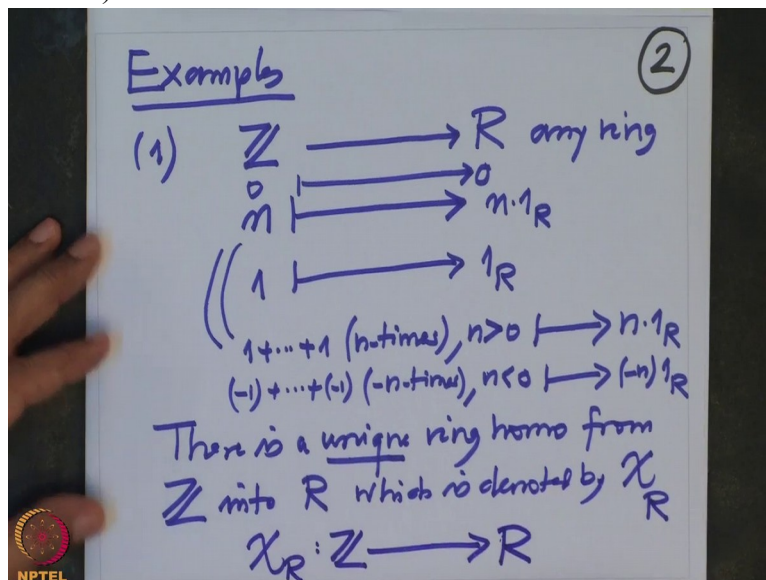 Examples
2
(1) ℤ ⟶ R any ring
0 ⟼ 0
n ⟼ n·1_R
((1 ⟼ 1_R
1+⋯+1 (n-times), n>0 ⟼ n·1_R
(-1)+⋯+(-1) (-n-times), n<0 ⟼ (-n)1_R
There is a unique ring homo from
ℤ into R which is denoted by χ_R
χ_R : ℤ ⟶ R
NPTEL